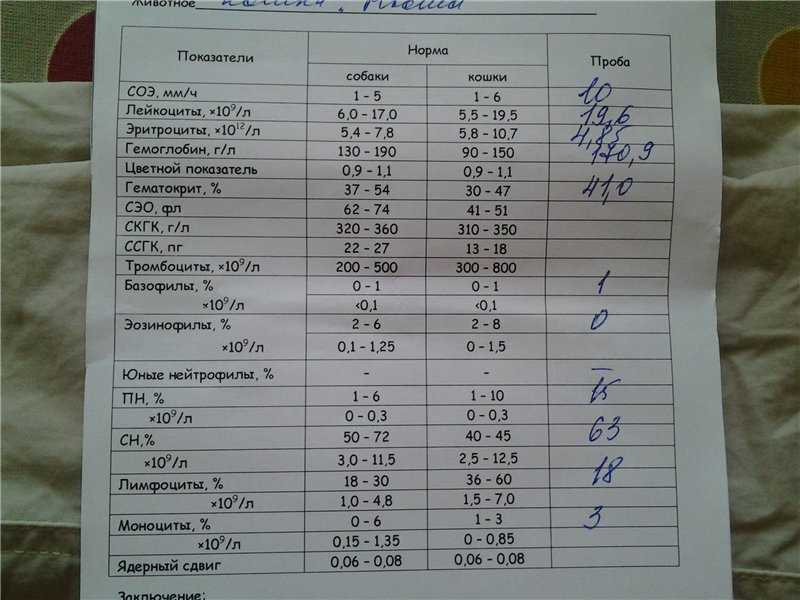 Животное кошка,
Показатели Норма Проба
собаки кошки
СОЭ, мм/ч 1 - 5 1 - 6 10
Лейкоциты, ×10⁹/л 6,0 - 17,0 5,5 - 19,5 19,6
Эритроциты, ×10¹²/л 5,4 - 7,8 5,8 - 10,7 4,85
Гемоглобин, г/л 130 - 190 90 - 150 170,9
Цветной показатель 0,9 - 1,1 0,9 - 1,1
Гематокрит, % 37 - 54 30 - 47 41,0
СЭО, фл 62 - 74 41 - 51
СКГК, г/л 320 - 360 310 - 350
ССГК, пг 22 - 27 13 - 18
Тромбоциты, ×10⁹/л 200 - 500 300 - 800
Базофилы, % 0 - 1 0 - 1 1
×10⁹/л <0,1 <0,1
Эозинофилы, % 2 - 6 2 - 8 0
×10⁹/л 0,1 - 1,25 0 - 1,5
Юные нейтрофилы, % - - –
ПН, % 1 - 6 1 - 10 15
×10⁹/л 0 - 0,3 0 - 0,3
СН,% 50 - 72 40 - 45 63
×10⁹/л 3,0 - 11,5 2,5 - 12,5
Лимфоциты, % 18 - 30 36 - 60 18
×10⁹/л 1,0 - 4,8 1,5 - 7,0
Моноциты, % 0 - 6 1 - 3 3
×10⁹/л 0,15 - 1,35 0 - 0,85
Ядерный сдвиг 0,06 - 0,08 0,06 - 0,08
Заключение: